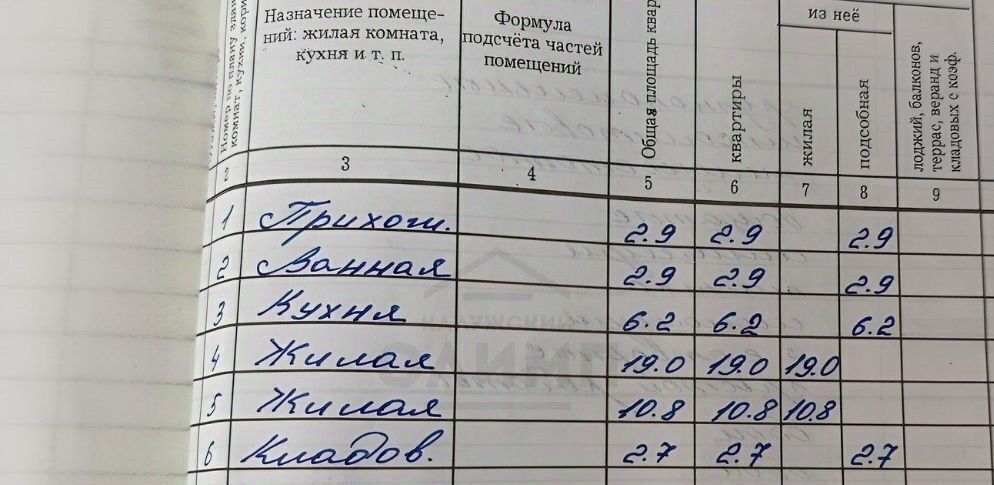 Номер по плану
комнат, кухни,
Назначение помеще-
ний: жилая комната,
кухня и т. п.
Формула
подсчёта частей
помещений
Общая площадь
квартиры
из неё
жилая
подсобная
лоджий, балконов,
террас, веранд и
кладовых с коэф.
2 3 4 5 6 7 8 9
1 Прихож. 2.9 2.9 2.9
2 Ванная 2.9 2.9 2.9
3 Кухня 6.2 6.2 6.2
4 Жилая 19.0 19.0 19.0
5 Жилая 10.8 10.8 10.8
6 Кладов. 2.7 2.7 2.7
КАЛУЖСКИЙ
ОЛИМП